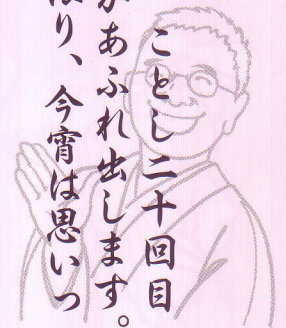 ことし二十回目
があふれ出します。
り、今宵は思いっ